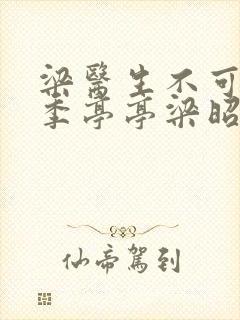 梁醫生不可
季亭亭梁昭
仙帝駕到